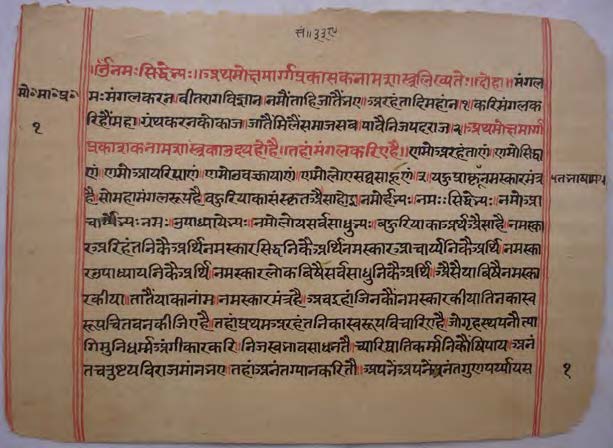 मो॰मा॰प्र॰
१
॥ॐनमःसिद्धेभ्यः॥अथमोक्षमार्गप्रकासकनामशास्त्रलिख्यते॥दोहा॥मंगल
मयमंगलकरन॥वीतरागविज्ञान॥नमौंताहिजातैंभए॥अरहंतादिमहांन॥१॥करिमंगलक
रिहौंमहा॥ग्रंथकरनकोकाज॥जातैंमिलैंसमाजसब॥पावैनिजपदराज॥२॥अथमोक्षमार्ग
प्रकाशकनामशास्त्रकाउदयहोहै॥तहांमंगलकरिएहै॥णमोअरहंताणं॥णमोसिद्धा
णं॥णमोआयरियाणं॥णमोउवज्झायाणं॥णमोलोएसव्वसाहूणं॥यहुप्राकृतनमस्कारमंत्र
है॥सोमहामंगलस्वरूपहै॥बहुरियाकासंस्कृतऐसाहोइ॥नमोर्हद्भ्यः॥नमःसिद्धेभ्यः॥नमोआ
चार्येभ्यःनमःउपाध्यायेभ्यः॥नमोलोयसर्वसाधुभ्यः॥बहुरियाकाअर्थऐसाहै॥नमस्का
रअरिहंतनिकैअर्थिनमस्कारसिद्धनिकैअर्थिनमस्कारआचार्यनिकैअर्थि॥नमस्का
रउपाध्यायनिकैअर्थि॥नमस्कारलोकविषैसर्वसाधुनिकैअर्थि॥ऐसैंयाविषैनमस्का
रकीया॥तातैंयाकानांम॥नमस्कारमंत्रहै॥अबइहांजिनकौंनमस्कारकीयातिनकास्व
रूपचिंतवनकीजिएहै॥तहांप्रथमअरहंतनिकास्वरूपविचारिएहै॥जोगृहस्थपनौत्या
गिमुनिधर्मअंगीकारकरि॥निजस्वभावसाधनतैं॥च्यारिघातिकर्मनिकौंषिपाय॥अनं
तचतुष्टयविराजमांनभए॥तहांअनंतग्यानकरितौ॥अपनेंअपनेंअनंतगुणपर्यायस
१